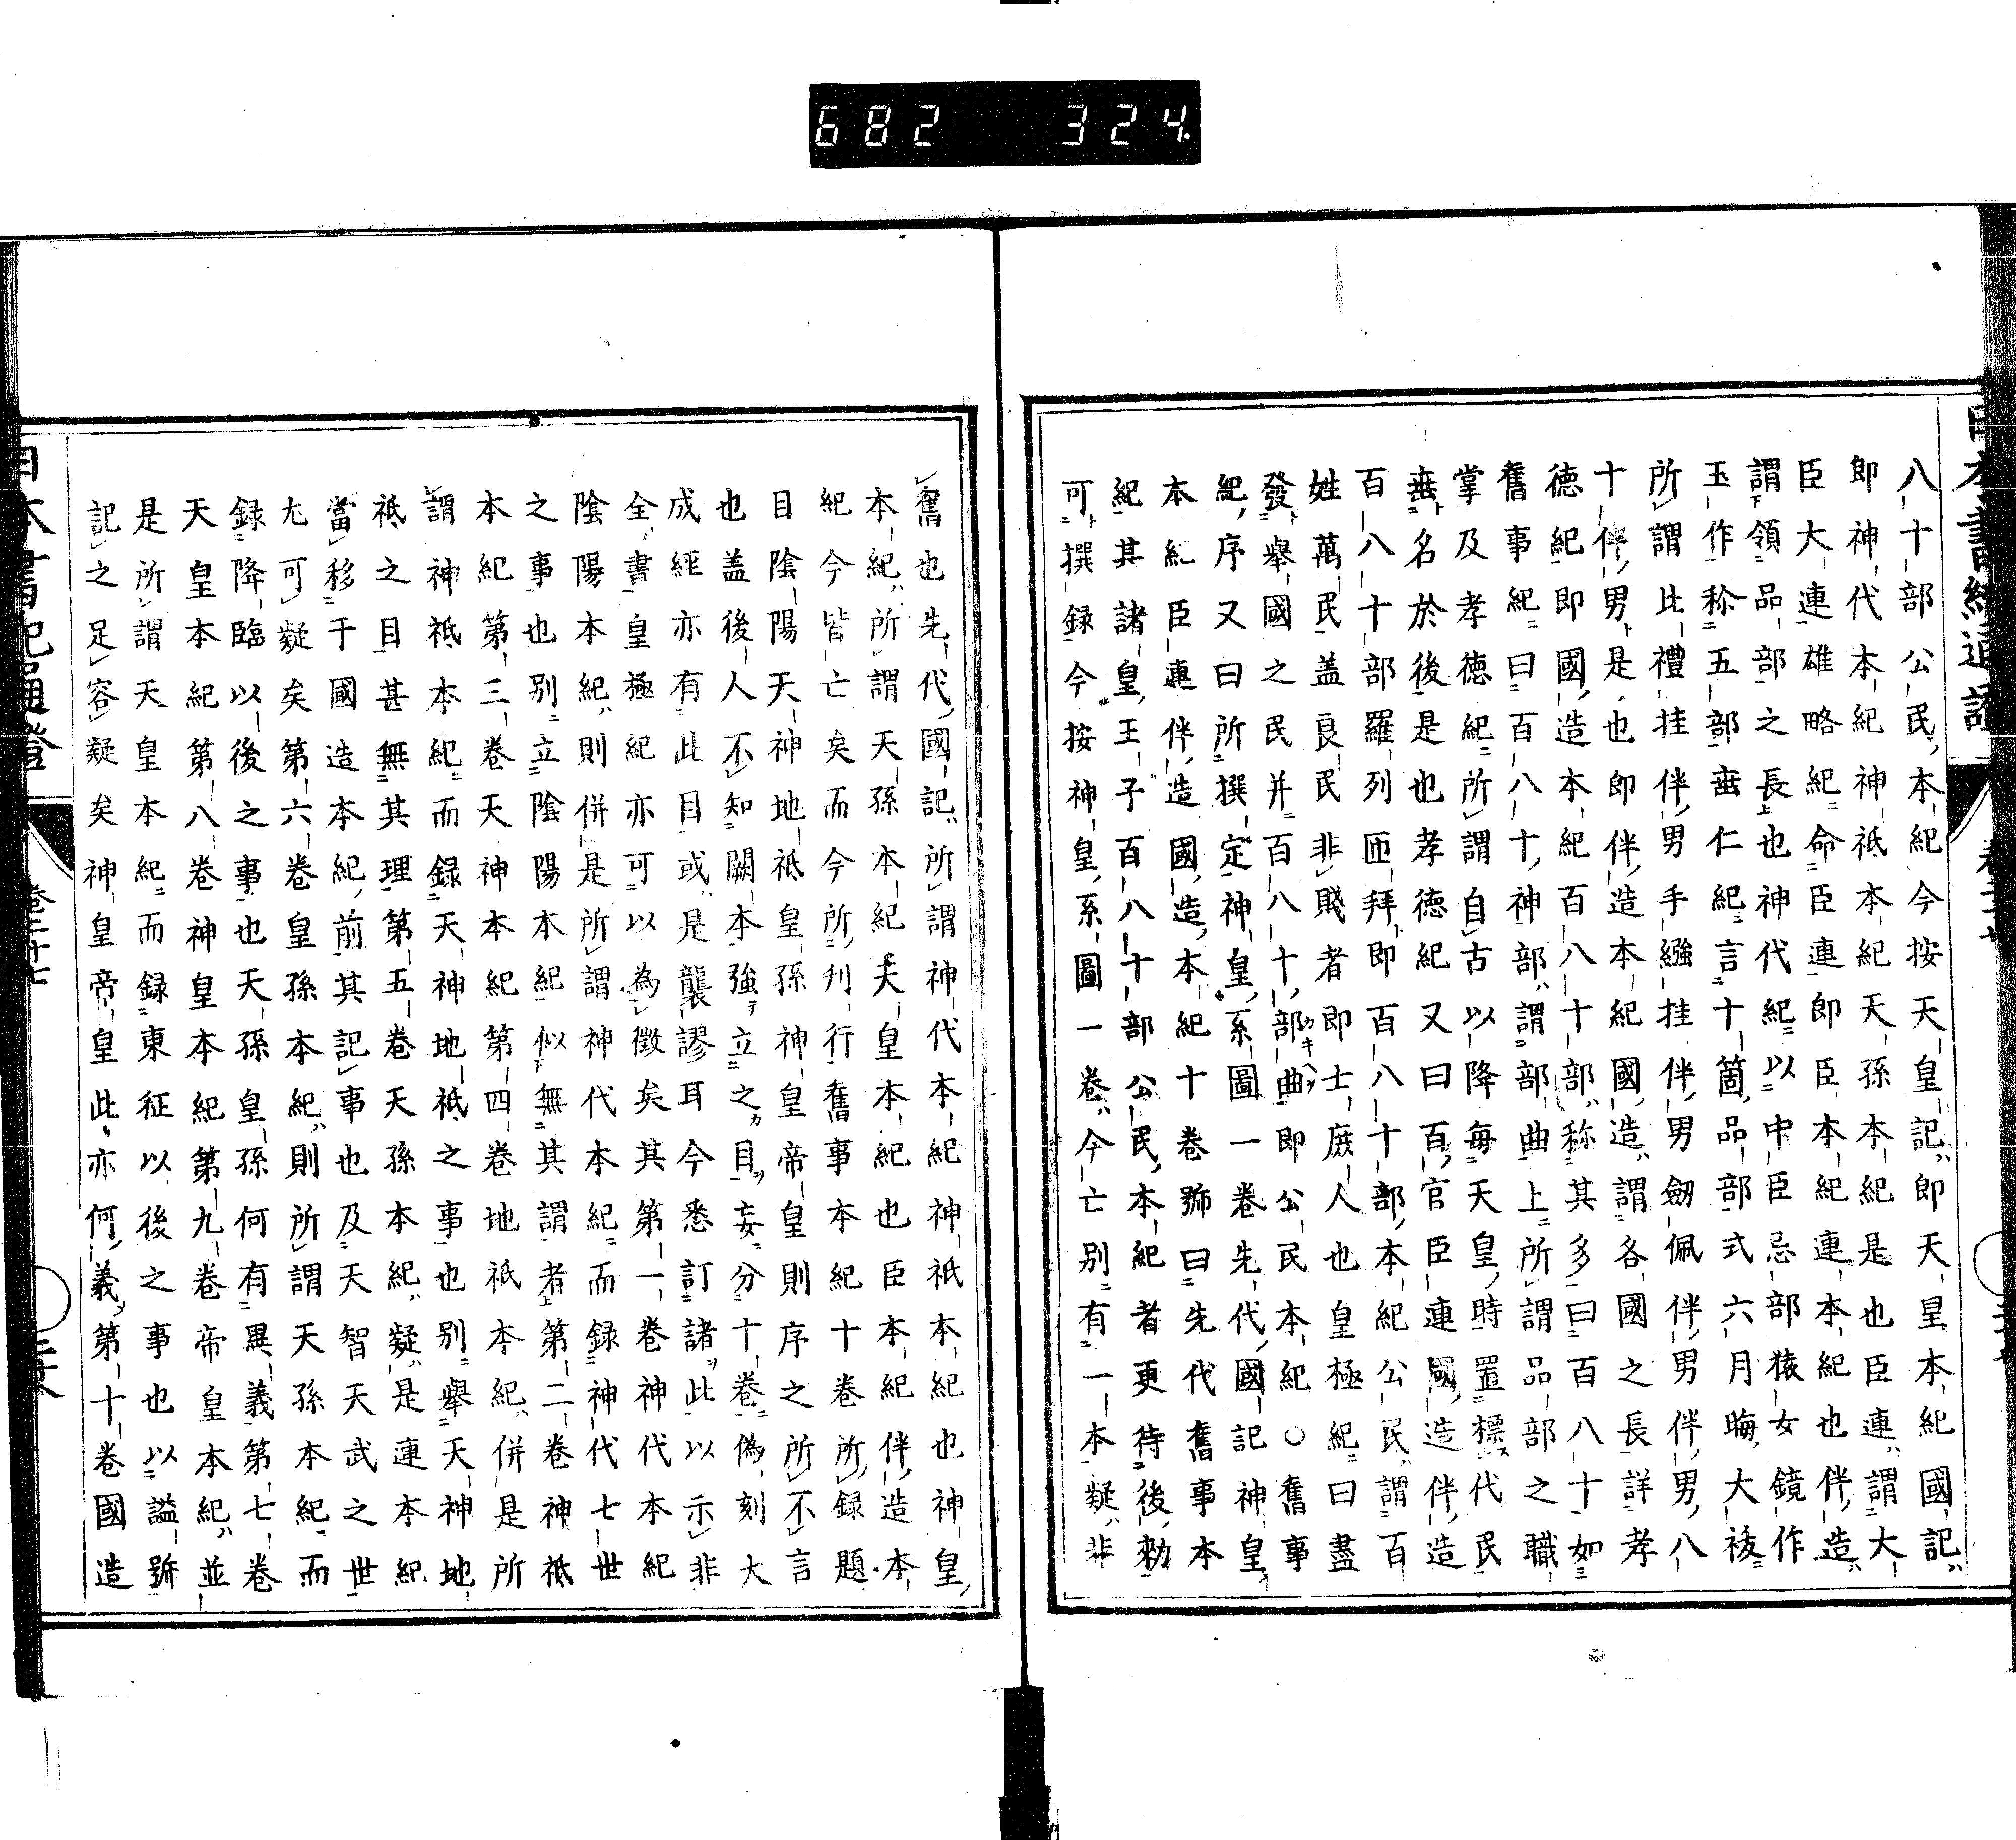 682 324
八十部公民本紀今按天皇記即天皇本紀國記
即神代本紀神祇本紀天孫本紀是也臣連謂大
臣大連雄略紀命臣連即臣本紀連本紀也伴造
謂領品部之長也神代紀以中臣忌部猿女鏡作
玉作称五部垂仁紀言十箇品部式六月晦大祓
所謂此禮挂伴男手繦挂伴男劔佩伴男伴男八
十伴男是也即伴造本紀國造謂各國之長詳孝
徳紀即國造本紀百八十部称其多曰百八十如
舊事紀曰百八十神部謂部曲上所謂品部之職
掌及孝徳紀所謂自古以降每天皇時置標代民
垂名於後是也孝徳紀又曰百官臣連國造伴造
百八十部羅列匝拜即百八十部本紀公民謂百
姓萬民盖良民非賤者即士庶人也皇極紀曰盡
發舉國之民并百八十部曲即公民本紀○舊事
紀序又曰所撰定神皇系圖一卷先代國記神皇
本紀臣連伴造國造本紀十卷號曰先代舊事本
紀其諸皇王子百八十部公民本紀者更待後勅
可撰録今按神皇系圖一卷今亡别有一本疑非
舊也先代國記所謂神代本紀神祇本紀也神皇
本紀所謂天孫本紀天皇本紀也臣本紀伴造本
紀今皆亡矣而今所刋行舊事本紀十卷所録題
目陰陽天神地祇皇孫神皇帝皇則序之所不言
也盖後人不知闕本強立之目妄分十卷偽刻大
成經亦有此目或是襲謬耳今悉訂諸此以示非
全書皇極紀亦可以為徵矣其第一卷神代本紀
陰陽本紀則併是所謂神代本紀而録神代七世
之事也别立陰陽本紀似無其謂者第二卷神祇
本紀第三卷天神本紀第四卷地祇本紀併是所
謂神祇本紀而録天神地祇之事也别舉天神地
祇之目甚無其理第五卷天孫本紀疑是連本紀
當移于國造本紀前其記事也及天智天武之世
尤可疑矣第六卷皇孫本紀則所謂天孫本紀而
録降臨以後之事也天孫皇孫何有異義第七卷
天皇本紀第八卷神皇本紀第九卷帝皇本紀並
是所謂天皇本紀而録東征以後之事也以謚號
記之足容疑矣神皇帝皇此亦何義第十卷國造